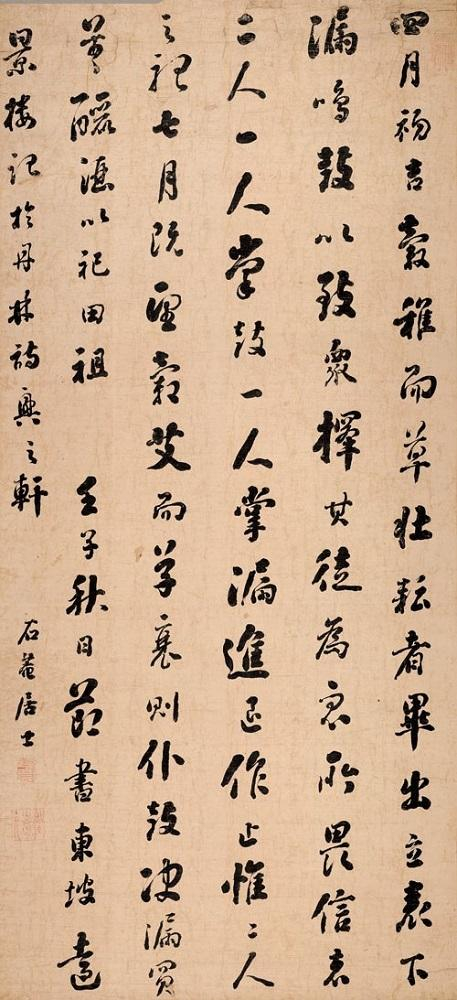 四月初吉穀稚而草壯耘者畢出立表下
漏鳴鼓以致衆擇其徒為衆所畏信者
二人一人掌鼓一人掌漏進退作止惟二人
之聽七月既望穀艾而草衰則仆鼓決漏買
羊豕醴酒以祀田祖 壬子秋日節書東坡遠
景樓記於丹林詩興之軒 石菴居士